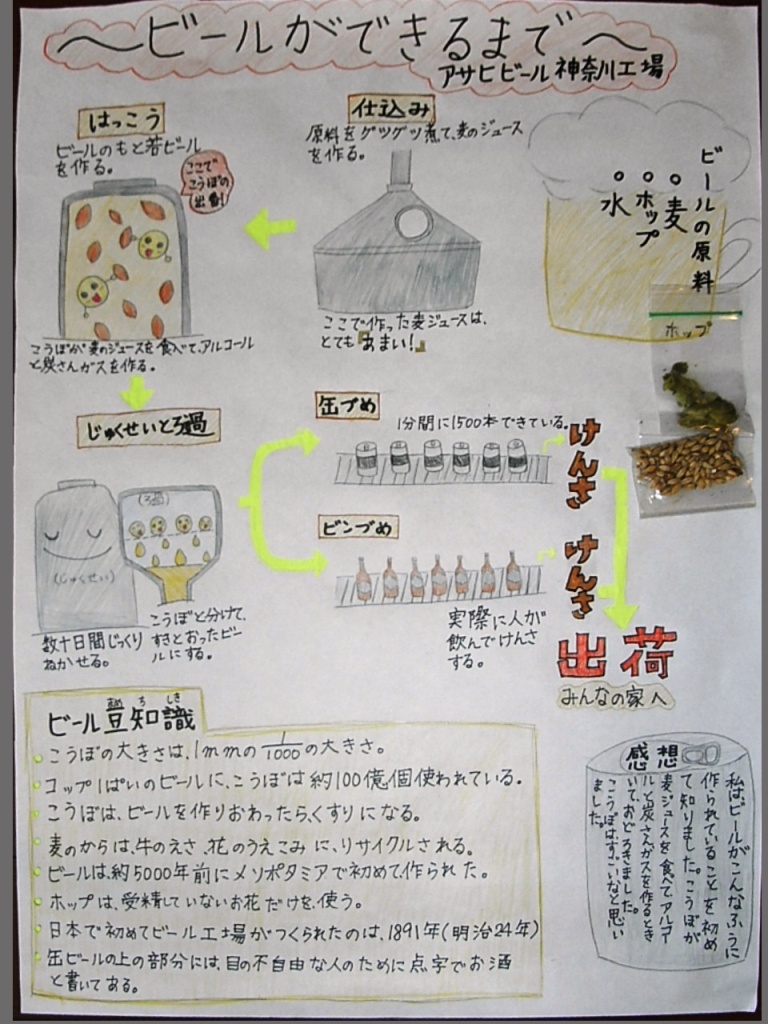 ～ビールができるまで～
アサヒビール神奈川工場
はっこう
ビールのもと若ビール
を作る。
ここで
こうぼの
出番!
こうぼが麦のジュースを食べて、アルコール
と炭さんガスを作る。
仕込み
原料をグツグツ煮て、麦のジュース
を作る。
ここで作った麦ジュースは、
とても「あまい!」
ビールの原料
麦
ホップ
水
ホップ
じゅくせいとろ過
(じゅくせい)
(ろ過)
数十日間じっくり
ねかせる。
こうぼと分けて、
すきとおったビー
ルにする。
缶づめ
1分間に1500本できている。
けんさ
ビンづめ
けんさ
実際に人が
飲んでけんさ
する。
出荷
みんなの家へ
ビール豆知識
まめ ち しき
こうぼの大きさは、1mmの1/1000の大きさ。
コップ1ぱいのビールに、こうぼは約100億個使われている。
こうぼは、ビールを作りおわったら、くすりになる。
麦のからは、牛のえさ、花のうえこみに、リサイクルされる。
ビールは、約5000年前にメソポタミアで初めて作られた。
ホップは、受精していないお花だけを使う。
日本で初めてビール工場がつくられたのは、1891年(明治24年)
缶ビールの上の部分には、目の不自由な人のために点字でお酒
と書いてある。
感想
私は、ビールがこんなふうに
作られていることを初め
て知りました。こうぼが
麦ジュースを食べて、アルコー
ルと炭さんガスを作るとき
いて、おどろきました。
こうぼはすごいなと思い
ました。